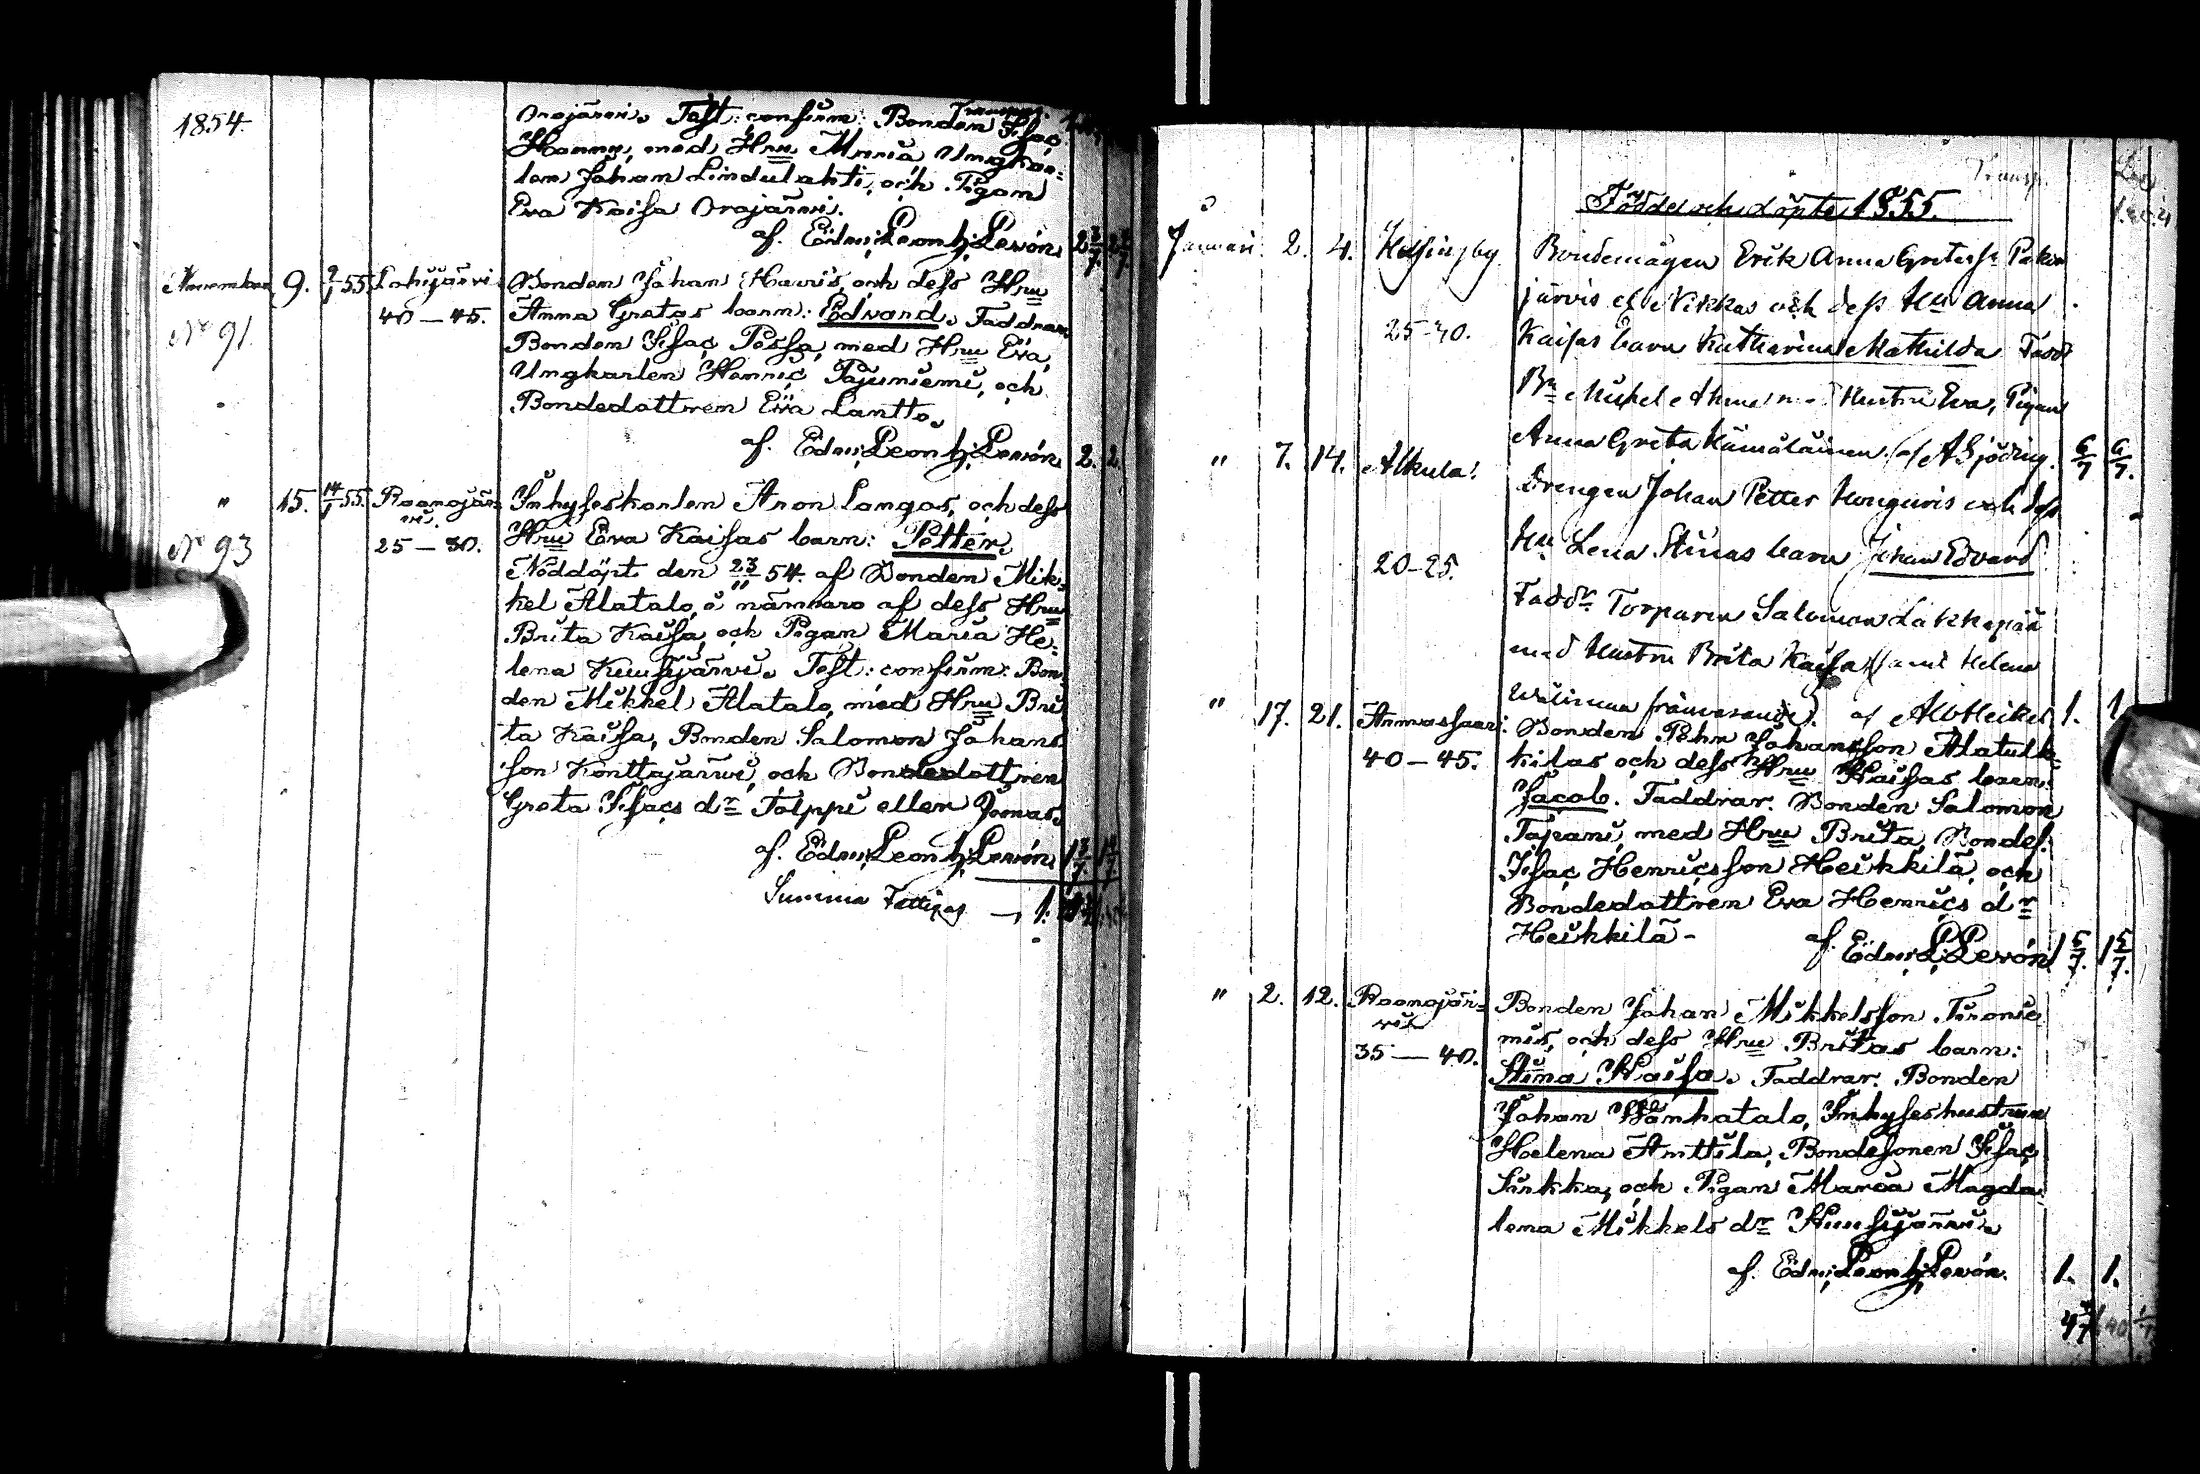 1854.
Orajärvi. Test: confirm: Bonden Isac
Hannu, med Hru Maria, Ungkar-
len Johan Lindulahti, och Pigan
Eva Kaisa Orajärvi.
af. Edv: Leonh: Levón
November 9. 9/1 55. Lohijärvi Bonden Johan Hauris, och dess Hru
40 — 45. Anna Gretas barn: Edvard. Faddrar
No 91. Bonden Isac Pessa, med Hru Eva,
Ungkarlen Henric Pajuniemi, och
Bondedottren Eva Lantto.
af. Edv: Leonh: Levón 2. 2.
" 15. 14/1 55. Raanojär- Inhyseskarlen Aron Langas, och dess
vi. Hru Eva Kaisas barn: Petter.
No 93 25 — 30. Nöddöpt den 23/11 54. af Bonden Mik-
kel Alatalo, i närvaro af dess Hru
Brita Kaisa, och Pigan Maria He-
lena Kuusijärvi. Test: confirm: Bon-
den Mikkel Alatalo, med Hru Bri
ta Kaisa, Bonden Salomon Johans
son Konttajärvi, och Bondedottren
Greta Isacs dr Talppi eller Joonas.
af. Edv: Leonh: Levón
Summa
Transp.
Födde och döpte 1855.
Januari 2. 4. Helsingby Bondemågen Erik Anna Gretess:
järvis el Nikkas och dess Hu Anna
25-30. Kaisas barn Katharina Mathilda Fadd
Bn Mickel Hustru Eva, Pigan
Anna Greta Hämäläinen. af A Sjöding. 6/7 6/7.
" 7. 14. Alkula. Drengen Johan Petter och dess
20-25. Hu Lena Stinas barn Johan Edvard
Faddr Torparen Salomon Lakkapää
med Hustru Brita Kaisa (samt Helena
frånvarande). af 1. 1
" 17. 21. Annassaari: Bonden Pehr Johansson Alatulk-
40 — 45. kilas och dess Hru Kaisas barn:
Jacob. Faddrar. Bonden Salomon
Tapani, med Hru Brita, Bondes:
Isac Henricsson Heikkilä, och
Bondedottren Eva Henrics dr
Heikkilä - af. Edv: L: Levón 1 5/7. 1 5/7.
" 2. 12. Raanojär- Bonden Johan Mikkelsson Tironie
vi. mis, och dess Hru Britas barn:
35 — 40. Stina Kaisa. Faddrar. Bonden
Johan Wanhatalo, Inhyseshustrun
Helena Anttila, Bondesonen Isac
Sirkka, och Pigan Maria Magda-
lena Mikkels dr Kuusijärvi.
af. Edv: Leonh: Levón. 1. 1.